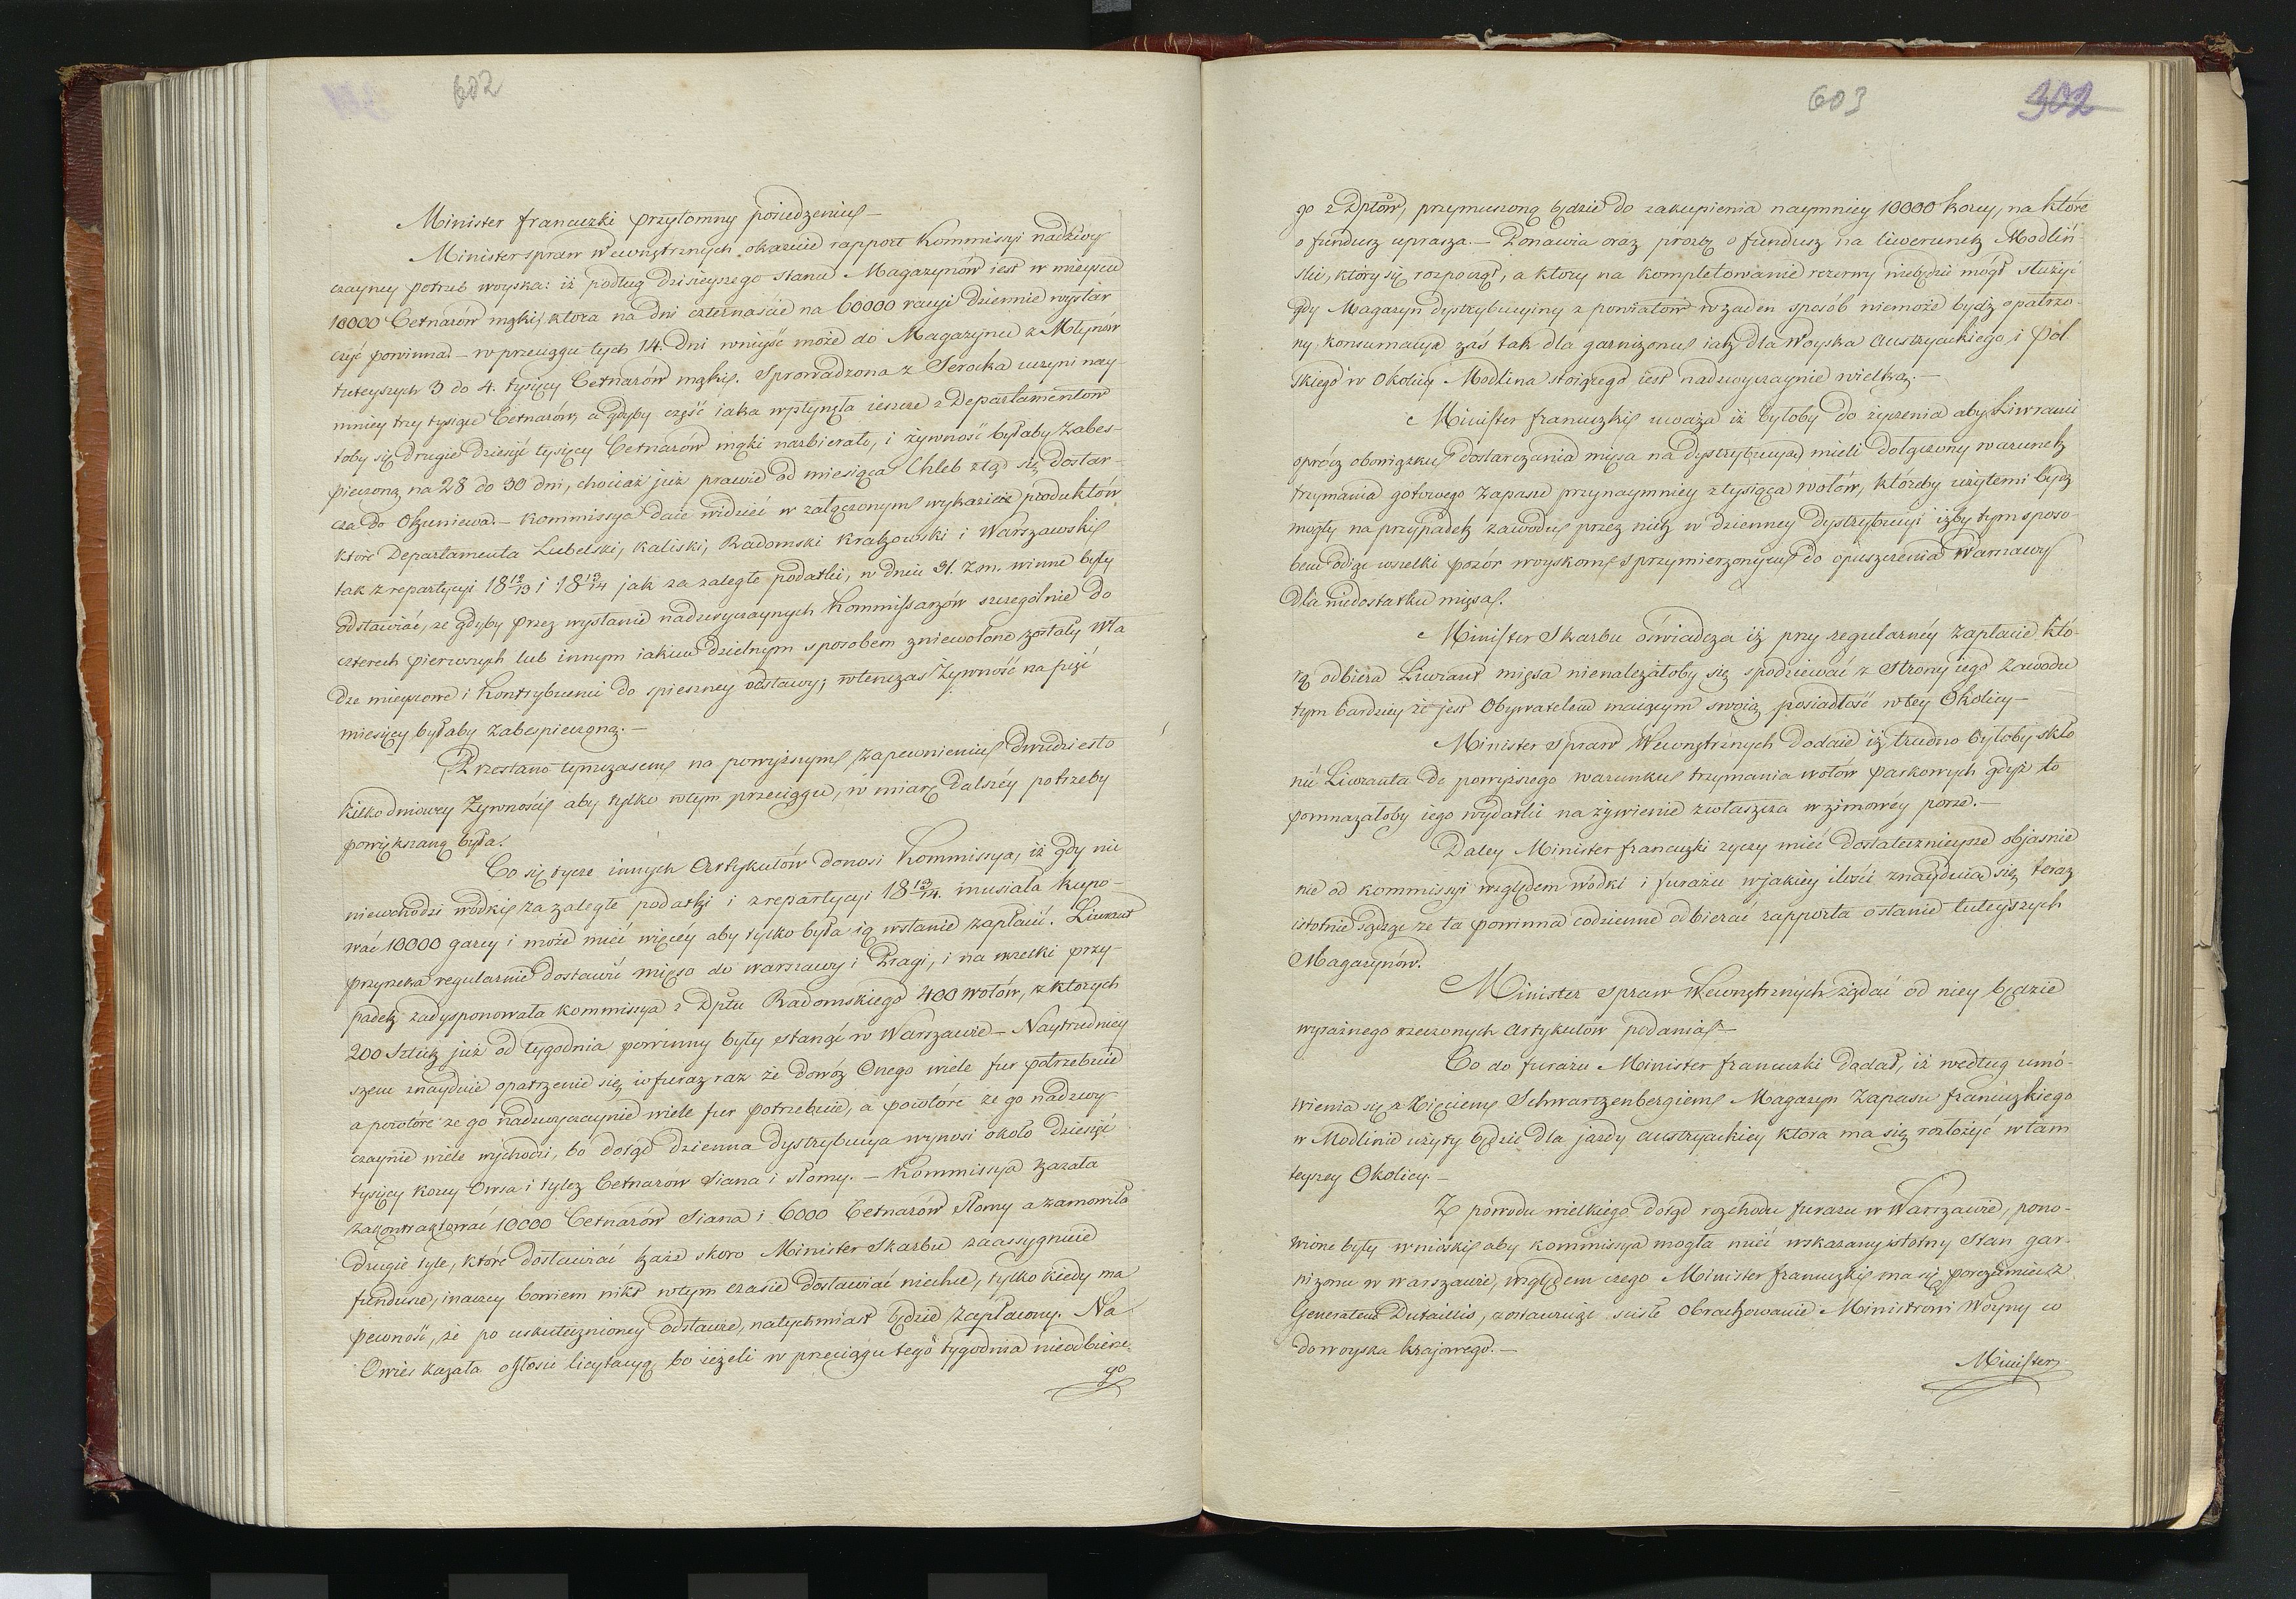 602
Minister francuzki przytomny posiedzeniu –
Minister spraw Wewnętrznych okazuie rapport Kommissyi nadzwy
czayney potrzeb woyska: iż podług dzisieyszego stanu Magazynów iest w mieyscu
10000 Cetnarów mąki, ktora na dni czternaście na 60000 racyi dziennie wystar
czyć powinna. – w przeciągu tych 14. dni wniyść może do Magazynu z Młynów
tuteyszych 3 do 4. tysięcy Cetnarów mąki. Sprowadzona z Serocka uczyni nay-
mniey trzy tysiące Cetnarów, a gdyby część iaka wpłynęła ieszcze z Departamentów
toby się drugie dziesięć tysięcy Cetnarów mąki nazbierało, i żywność byłaby zabes-
pieczoną na 28 do 30 dni, chociaż już prawie od miesiąca Chleb ztąd się dostar-
cza do Okuniewa. – Kommissya daie widzieć w załączonym wykazie produktów
które Departamenta Lubelski, Kaliski, Radomski Krakowski i Warszawski
tak z repartycyi 18 12/13 i 18 13/14 jak za zaległe podatki, w dniu 31. z. m. winne były
odstawiać, że gdyby przez wysłanie nadzwyczaynych Kommissarzów szczególnie do
czterech pierwszych lub innym iakim dzielnym sposobem zniewolone zostały Wła
dze mieyscowe i Kontrybuenci do spieszney odstawy; wtenczas Żywność na pięć
miesięcy byłaby zabespieczoną. –
Przestano tymczasem na powyższym zapewnieniu dwudziesto
kilko dniowey Żywności aby tylko w tym przeciągu, w miarę dalszéy potrzeby
powiększaną była.
Co się tycze innych Artykułów donosi Kommissya, iż gdy nic
niewchodzi wódki za zaległe podatki i z repartycyi 18 13/14. musiała kupo-
wać 10000 garcy i może mieć więcéy aby tylko była ią wstanie zapłacić. Liwerant
przyrzeka regularnie dostawić mięso do Warszawy i Pragi, i na wszelki przy-
padek zadysponowała Kommissya z Dptu Radomskiego 400 wołów, z których
200 Sztuk już od tygodnia powinny były stanąć w Warszawie – Naytrudniey
szem znayduie opatrzenie się w furaz raz że dowóz Onego wiele fur potrzebuie
a powtóre ze go nadzwyczaynie wiele fur potrzebuie, a powtóre ze go nadzwy
czaynie wiele wychodzi, bo dotąd dzienna dystrybucya wynosi około dziesięć
tysięcy korcy Owsa i tyleż Cetnarów Siana i słomy. – Kommissya kazała
zakontraktować 10000 Cetnarów Siana i 6000 Cetnarów Słomy a zamowiła
drugie tyle, które dostawiać każe skoro Minister Skarbu zaassygnuie
fundusze, inaczey bowiem nikt w tym czasie dostawiać niechce, tylko kiedy ma
pewność, że po uskutecznioney odstawie, natychmiast będzie zapłacony. Na
Owies kazała ogłosić licytacyę, bo ieżeli w przeciągu tego tygodnia nieodbierze
go
603
302
go z Dptów, przymuszoną będzie do zakupienia naymniey 10000 korcy, na które
o fundusz uprasza. – Ponawia oraz prozbę o fundusz na liwerunek Modliń-
ski, który się rozpoczął, a który na kompletowanie rezerwy niebędzie mógł służyć
gdy Magazyn dystrybucyiny z powiatów w żaden sposób niemoże bydź opatrzo-
ny, konsumacya zaś tak dla garnizonu iak dla Woyska Austryackiego i Pol
skiego w Okolicy Modlina stoiącego iest nadzwyczaynie wielka. –
Minister francuzki uważa iż byłoby do życzenia aby Liweranci
oprócz obowiązku dostarczania mięsa na dystrybucyą mieli dołączony warunek
trzymania gotowego zapasu przynaymniey z tysiąca wołów, któreby użytemi bydź
mogły na przypadek zawodu przez nich w dzienney dystrybucyi iżby tym sposo-
bem odiąć wszelki pozór woyskom sprzymierzonym do opuszczenia Warszawy
dla niedostatku mięsa.
Minister Skarbu oświadcza iż przy regularnéy zapłacie, któ-
rą odbiera Liwerant mięsa nienależałoby się spodziewać z strony iego zawodu
tym bardziey że jest Obywatelem maiącym swoią posiadłość w tey Okolicy –
Minister Spraw Wewnętrznych dodaie iż trudno byłoby skło
nić Liweranta do powyższego warunku trzymania wołów parkowych gdyż to
pomnażałoby iego wydatki na żywienie zwłaszcza w zimowéy porze. –
Daley Minister francuzki życzy mieć dostatecznieysze objaśnie
nie od Kommissyi względem wódki i furażu w jakiey ilości znayduia się teraz
istotnie sądząc ze ta powinna codzienne odbierać rapporta o stanie tuteyszych
Magazynów.
Minister Spraw Wewnętrznych żądać od niey będzie
wyraźnego rzeczonych Artykułów podania. –
Co do furażu Minister francuzki dodał, iż według umó-
wienia się z Xięciem Schwartzenbergiem Magazyn zapasu francuzkiego
w Modlinie użyty będzie dla jazdy Austryackiey ktora ma się rozłożyć w tam
teyszey Okolicy. –
Z powodu wielkiego dotąd rozchodu furażu w Warszawie, pono-
wione były wnioski aby Kommissya mogła mieć wskazany istotny Stan gar-
nizonu w Warszawie, względem czego Minister francuzki ma się porozumieć z
Generałem Dutaillis, zostawuiąc ścisłe obrachowanie Ministrowi Woyny co
do woyska krajowego. –
Minister